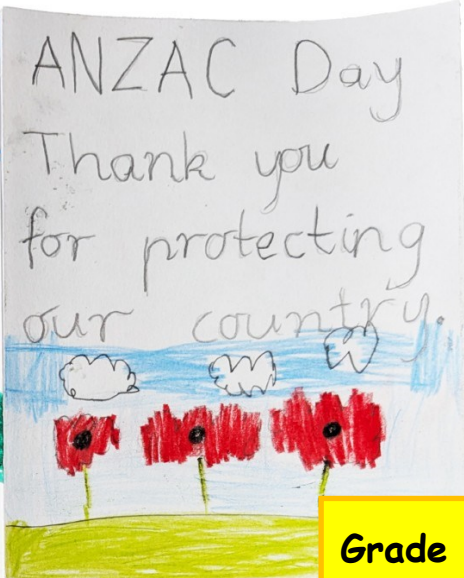 ANZAC Day
Thank you
for protecting
our country.
Grade